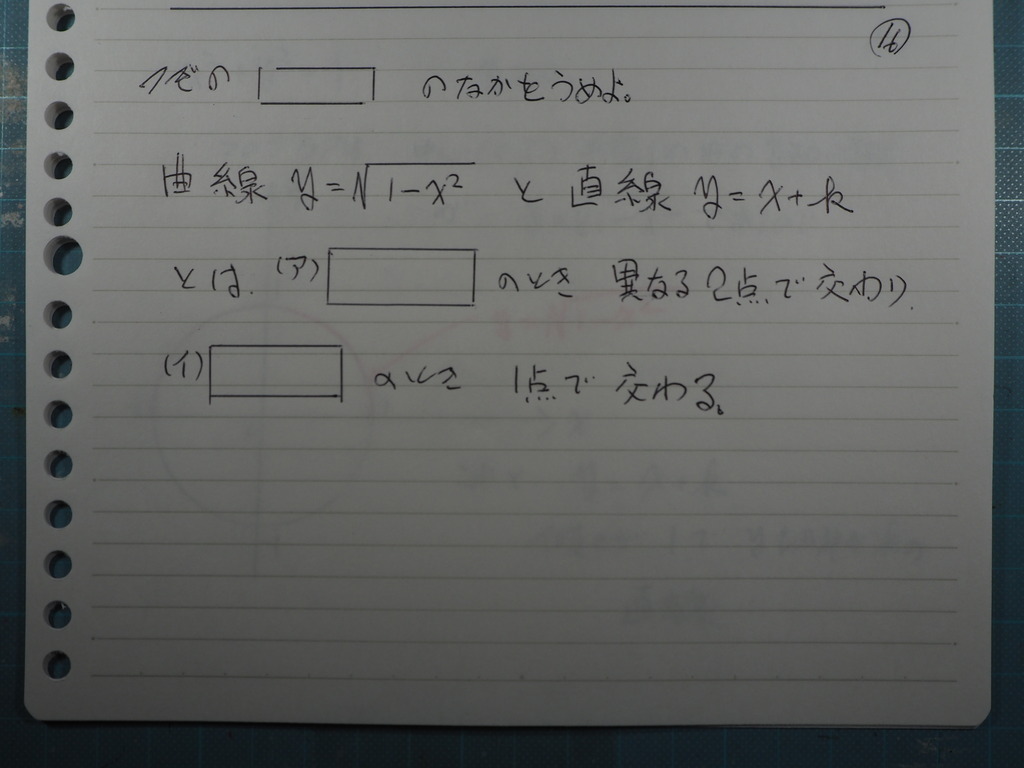 16
つぎの のなかをうめよ。
曲線 y=√1-x² と 直線 y=x+k
とは、(ア) のとき 異なる2点で交わり、
(イ) のとき 1点で 交わる。